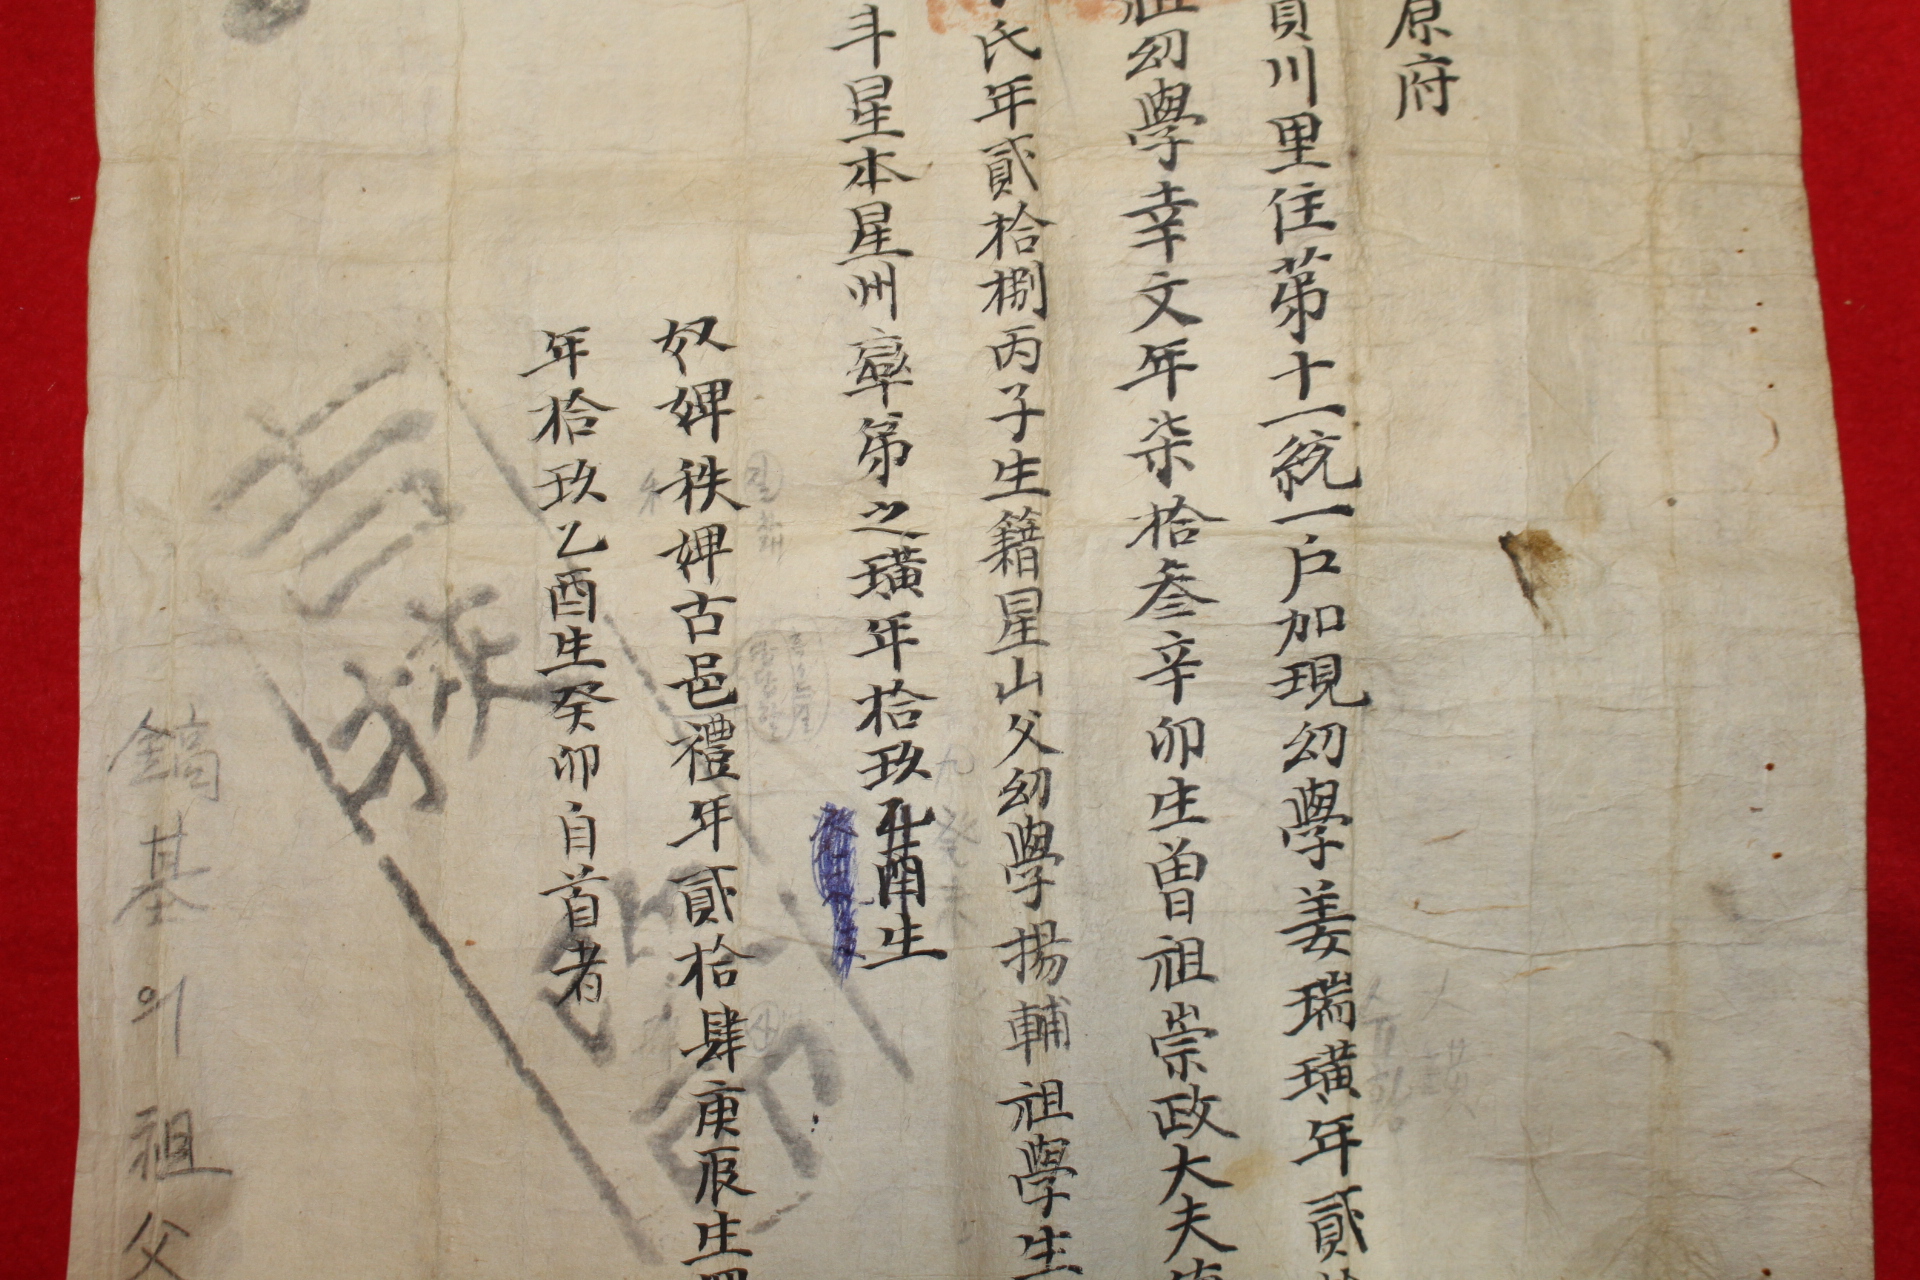 原府
貢川里住第十一統一戶加現幼學姜瑞璜年貳
祖幼學幸文年柒拾叁辛卯生曾祖崇政大夫
氏年貳拾捌丙子生籍星山父幼學揚輔祖學生
斗星本星州宰第之璜年拾玖乙酉生
奴婢秩婢古邑禮年貳拾肆庚辰生
年拾玖乙酉生癸卯自首者
鎬基의祖父